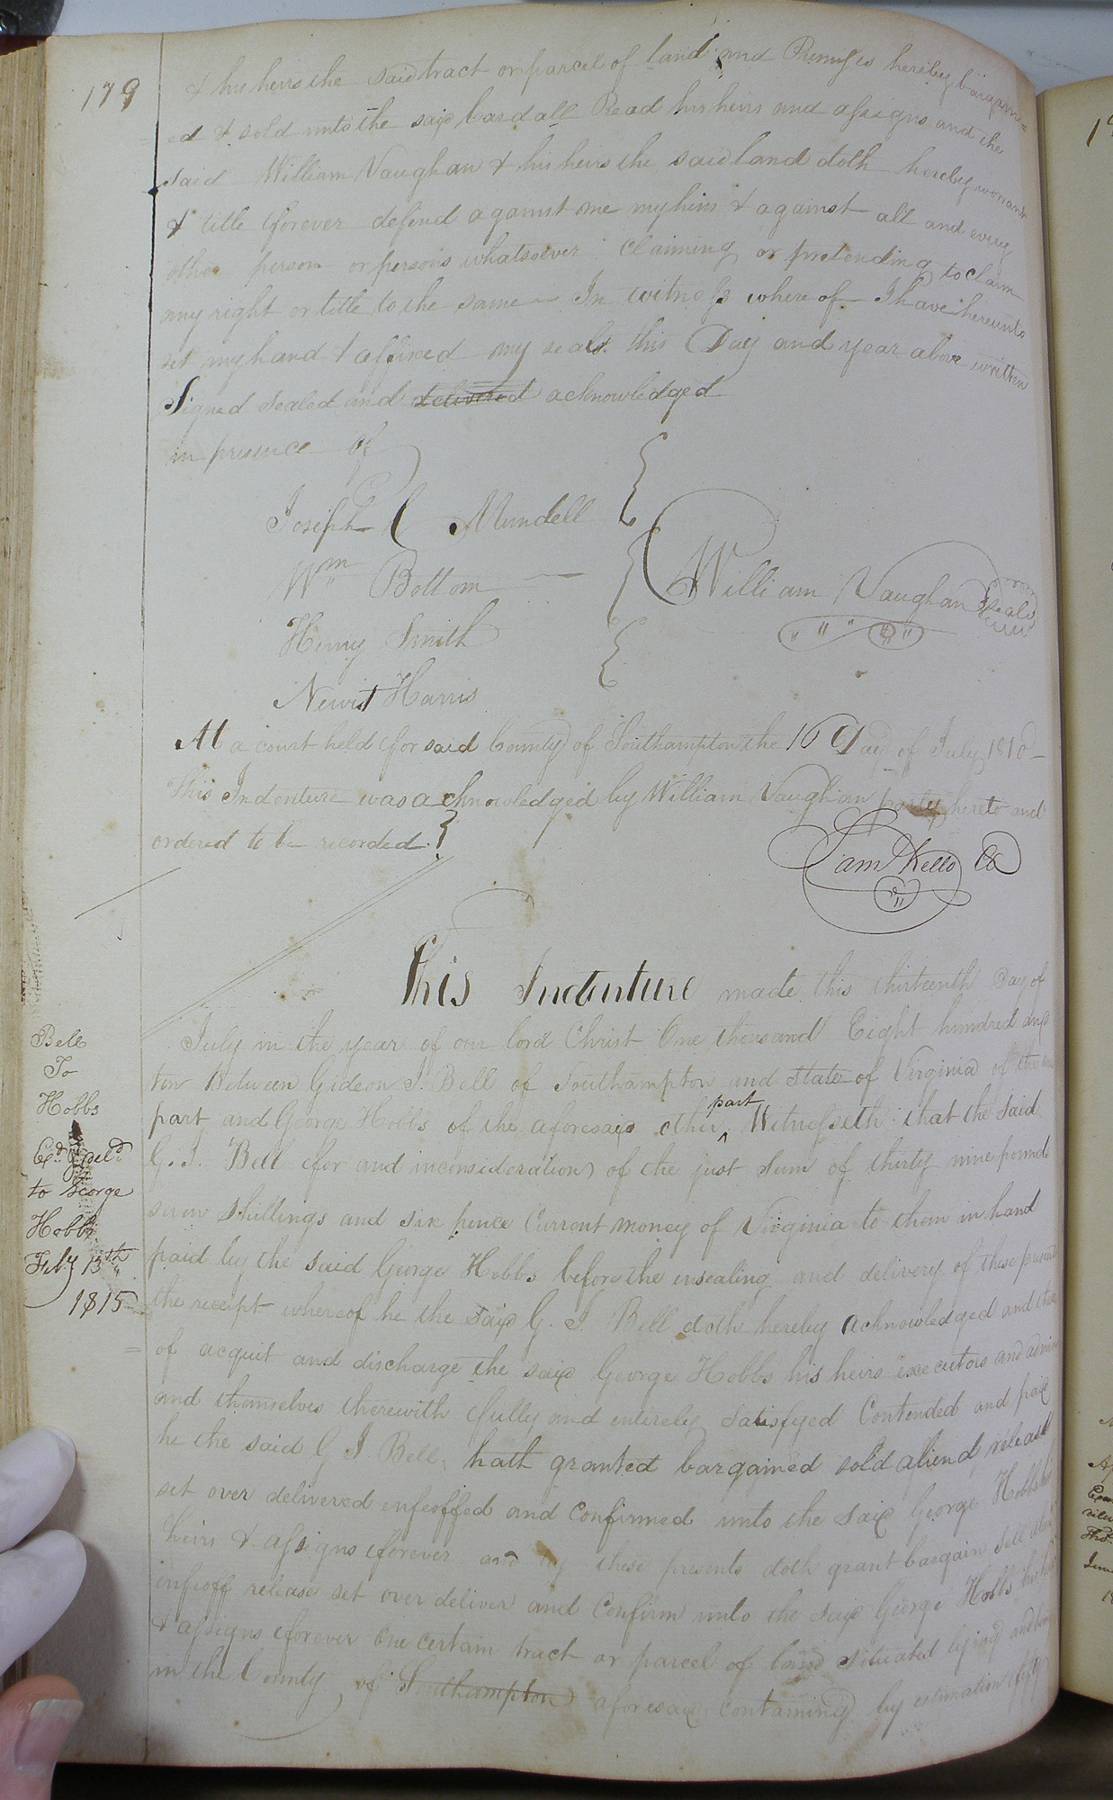 179
& his heirs the said tract or parcel of land and Premises hereby bargain=
ed & sold unto the said Read his heirs and assigns and the
said William Vaughan & his heirs the said land doth hereby warrant
& title forever defend against me my heirs & against all and every
other person or persons whatsoever claiming or pretending to claim
any right or title to the same - In witness where of I have hereunto
set my hand & affixed my seal this Day and year above written
Signed Sealed and delivered acknowledged
in presence of
Joseph C Mundell
Wm Bottom
Henry Smith
Newit Harris
William Vaughan Seal
At a court held for said County of Southampton the 16 Day of July 1810
This Indenture was acknowledged by William Vaughan party hereto and
ordered to be recorded
Sam Kello CC
This Indenture made this thirteenth Day of
July in the year of our lord Christ One thousand Eight hundred and
ten Between Gideon J. Bell of Southampton and state of Virginia of the one
part and George Hobbs of the aforesaid other part Witnesseth that the said
G. J. Bell for and in consideration of the just Sum of thirty nine pounds
seven Shillings and six pence Current money of Virginia to them in hand
paid by the said George Hobbs before the ensealing and delivery of these presents
the receipt whereof he the said G. J Bell doth hereby acknowledged and there
of acquit and discharge the said George Hobbs his heirs executors and admin
and themselves therewith fully and entirely Satisfyed Contended and paid
he the said G J Bell hath granted bargained sold aliend release
set over delivered infeoffed and Confirmed unto the said George Hobbs his
heirs & assigns forever and by these presents doth grant bargain sell alien
infeoff release set over deliver and Confirm unto the said George Hobbs his heirs
& assigns forever One certain tract or parcel of land situated lying and being
in the County of Southampton aforesaid containing by estimation fifty
Bell
To
Hobbs
Exd & deld
to George
Hobbs
Feby 13th
1815